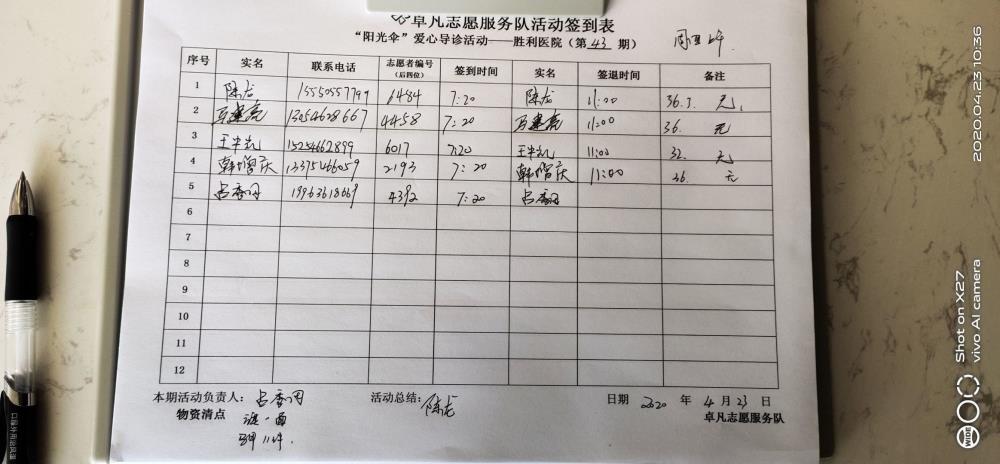 卓凡志愿服务队活动签到表
“阳光伞”爱心导诊活动——胜利医院（第 43 期） 周四上午
序号 实名 联系电话 志愿者编号（后四位） 签到时间 实名 签退时间 备注
1 陈龙 15550557799 6484 7:20 陈龙 11:00 36.3. 无
2 13054628667 4458 7:20 11:00 36. 无
3 15254662899 6017 7:20 11:00 32. 无
4 韩增庆 13375466059 2193 7:20 韩增庆 11:00 36. 无
5 吕香 18963618669 4392 7:20 吕香
6
7
8
9
10
11
12
本期活动负责人： 吕香 活动总结： 陈龙 日期 2020 年 4 月 23 日
物资清点 卓凡志愿服务队
旗一面
马甲 11件
2020.04.23 10:36
Shot on X27
vivo AI camera
口服外用治风湿